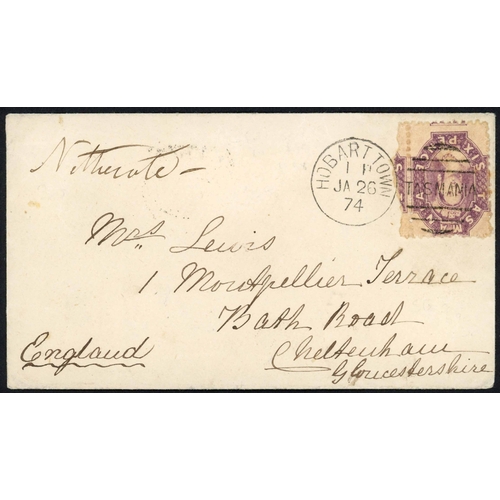 HOBART TOWN
1 P
JA 26
74
TASMANIA
SIX PE
Mrs Lewis
1 Montpellier Terrace
Bath Road
Cheltenham
Gloucestershire
England